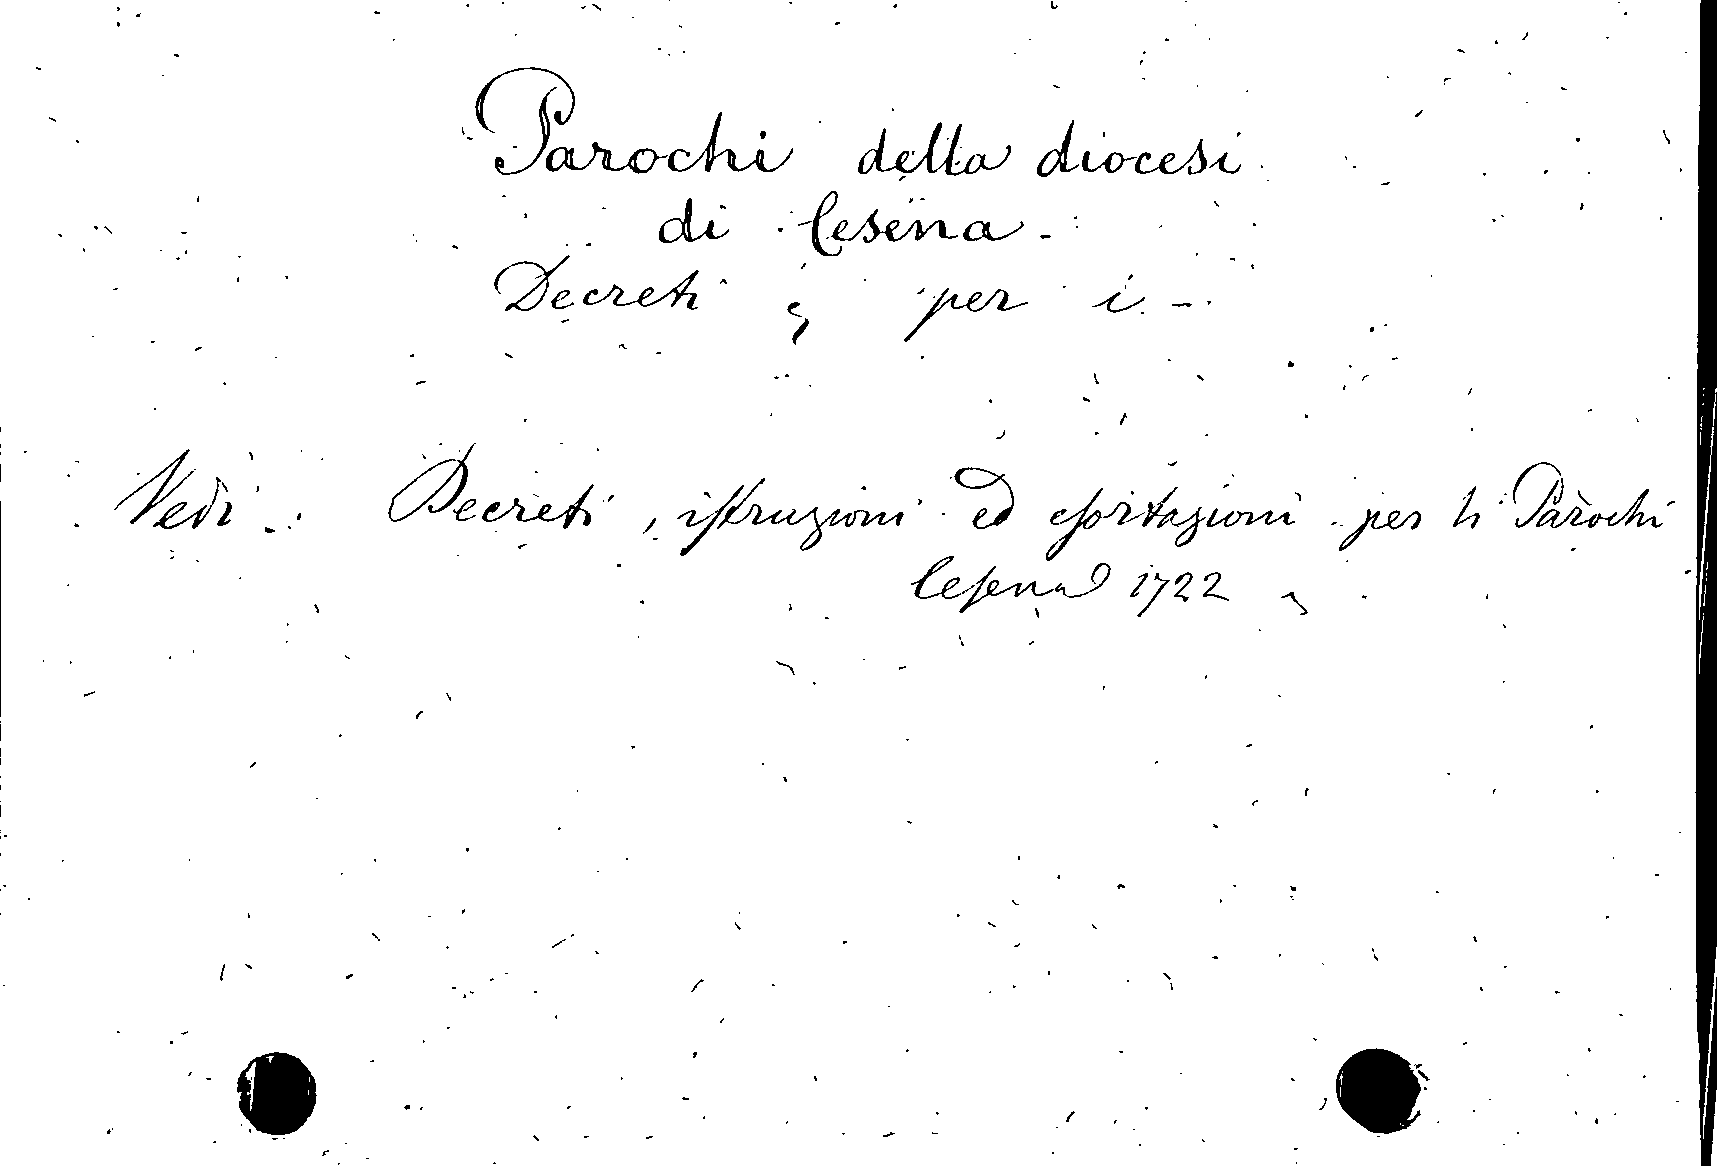 Parochi della diocesi
di Cesena -
Decreti , per i -
Vedi . Decreti , istruzioni ed esortazioni per li Parochi
Cesena 1722